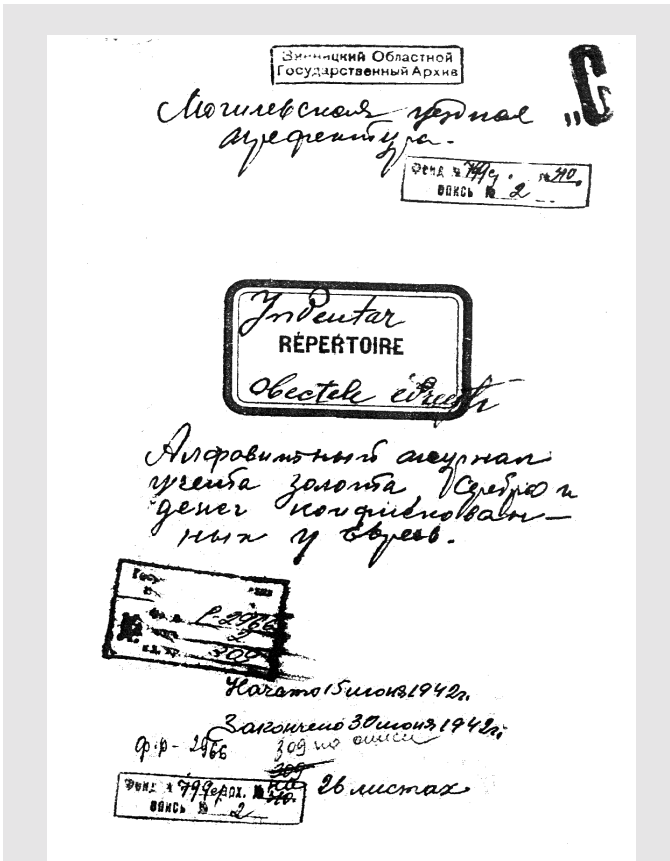 Винницкий Областной
Государственный Архив
„С
Могилевская уездная
префектура.
Фонд № 799 № 40.
опись № 2
Inventar
RÉPERTOIRE
obectele evreești
Алфавитный журнал
учета золота серебра и
денег конфискован—
ных у евреев.
Р-2966
2
309
Начато 15 июня 1942г.
Закончено 30 июня 1942г.
ф.р- 2966
309 по описи
309
на 26 листах
Фонд № 799 ерх. № 40.
опись № 2